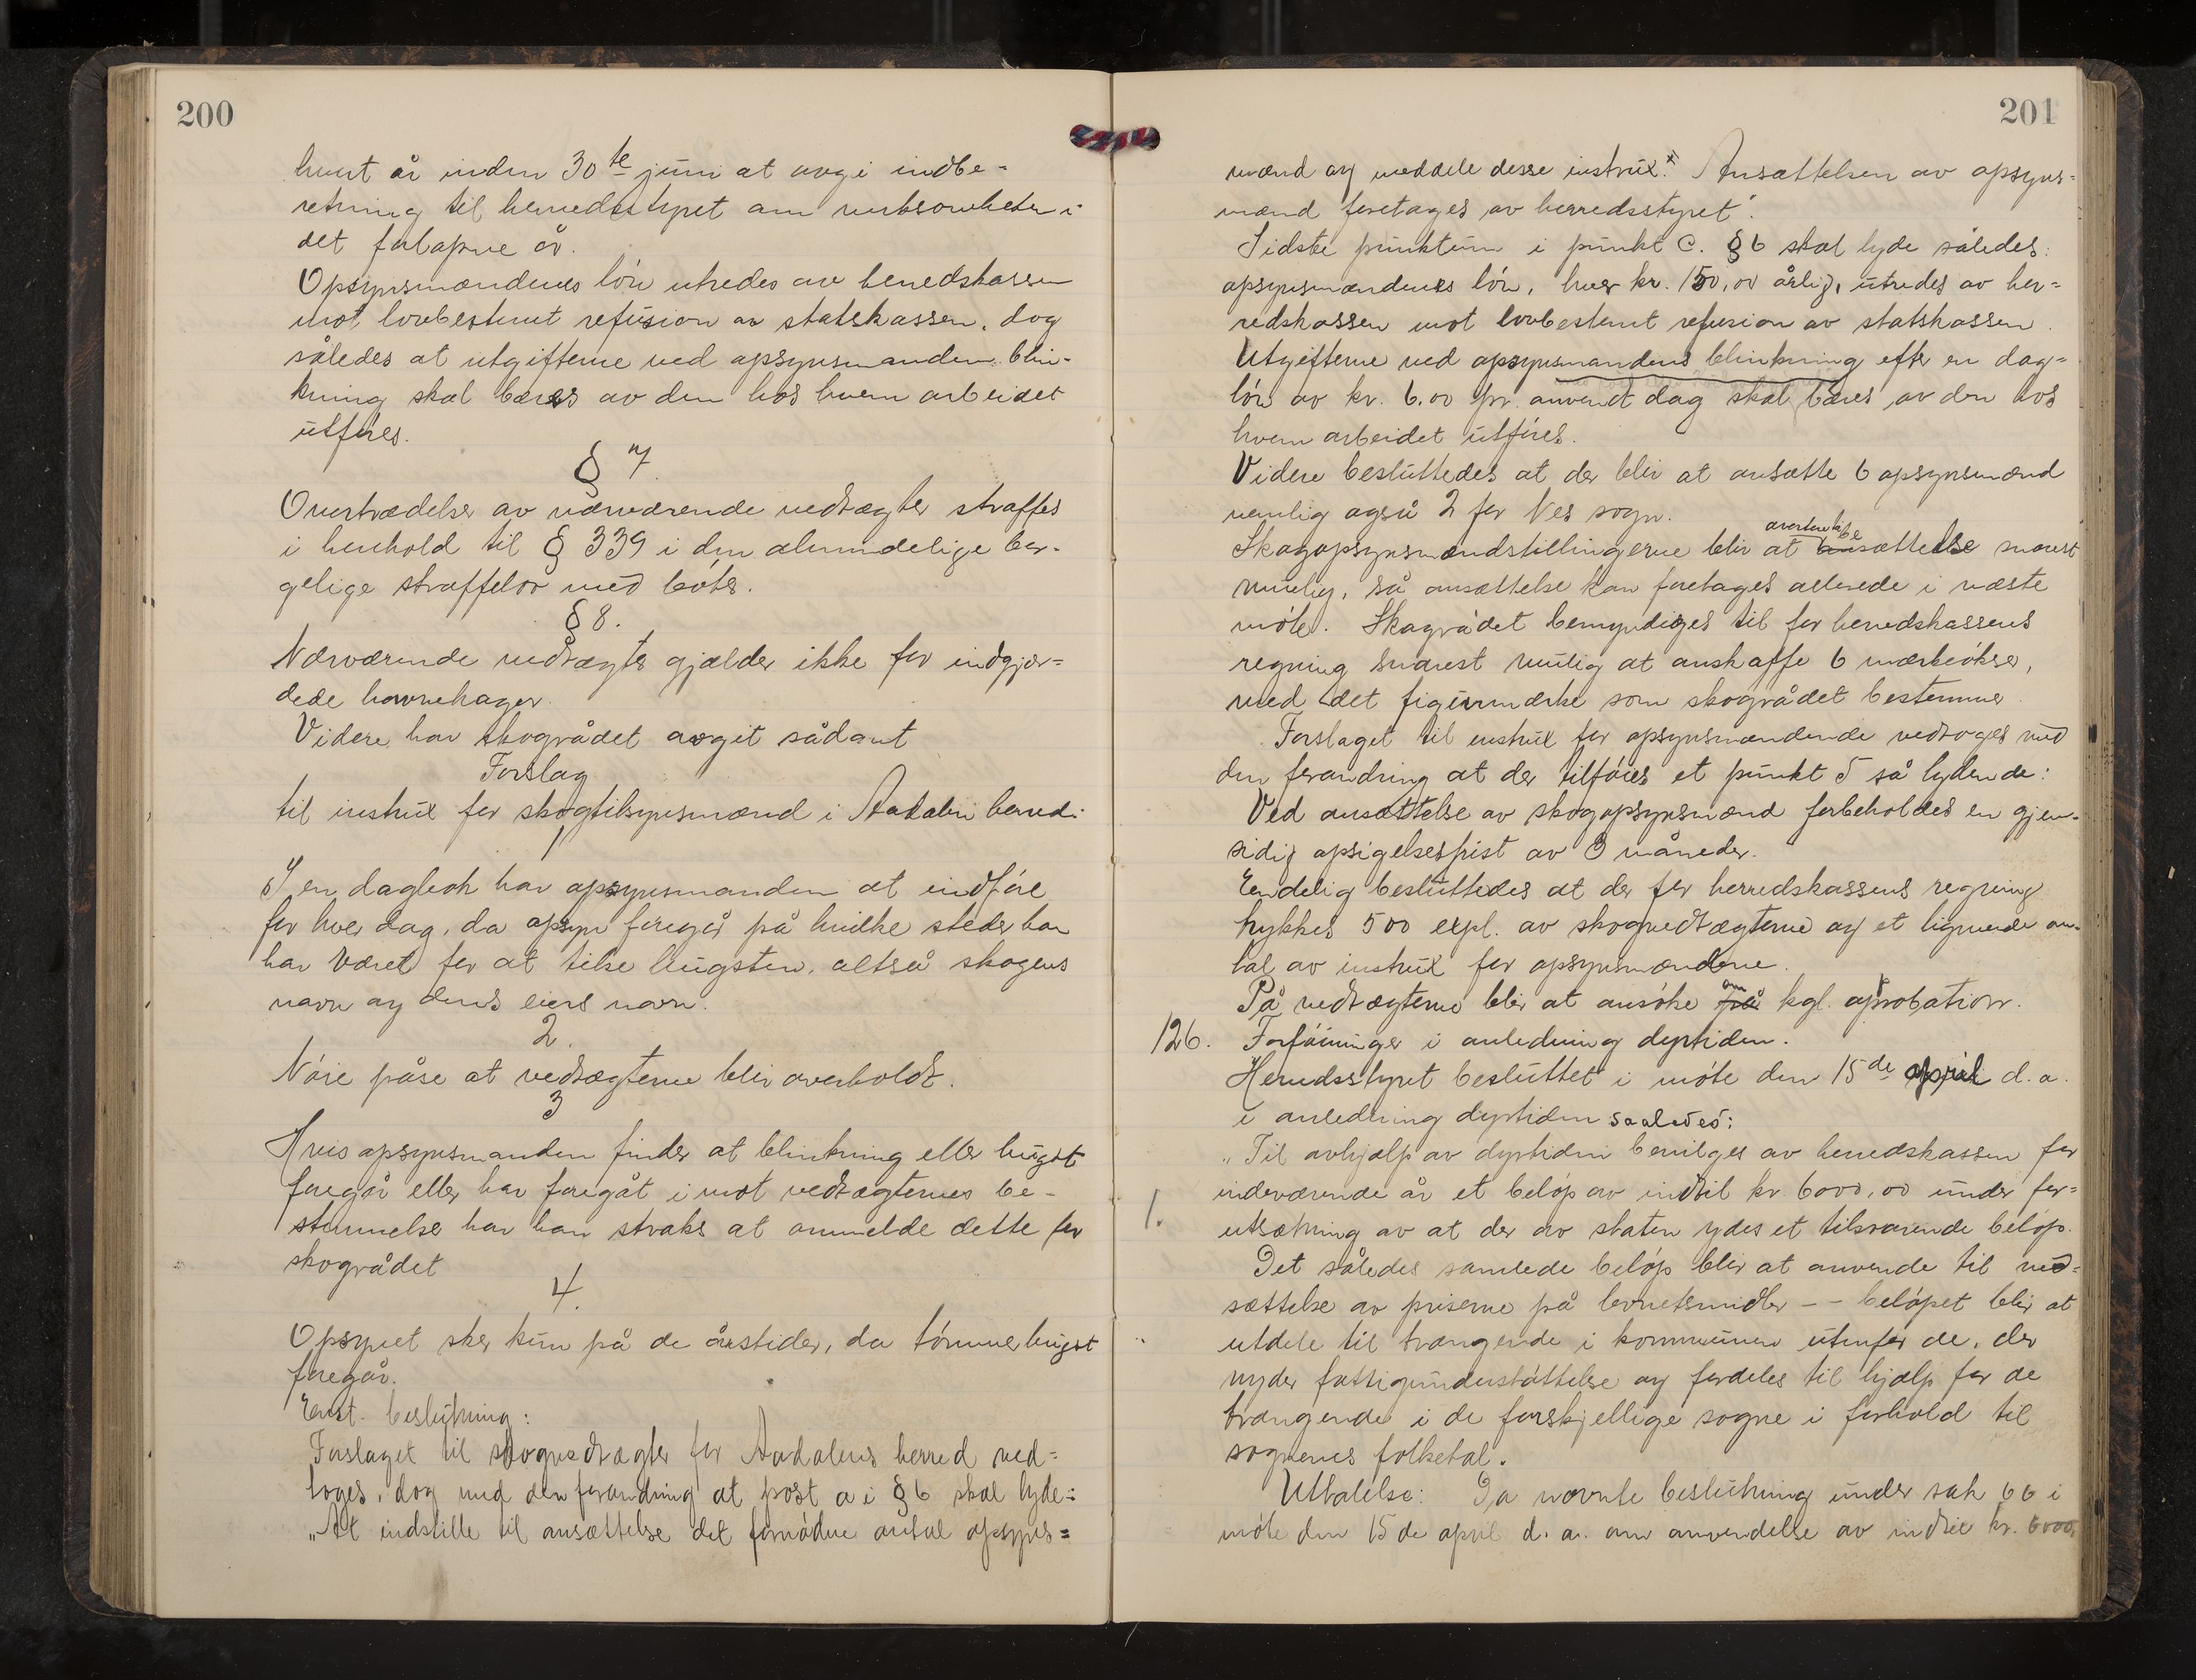 200
hvert år inden 30te juni at avgi indbe-
retning til herredsstyret om virksomheten i
det forløpne år.
Opsynsmændenes løn utredes av herredskassen
mot lovbestemt refusion av statskassen, dog
således at utgifterne ved opsynsmandens blin-
kning skal bæres av den hos hvem arbeidet
utføres.
§ 7
Overtrædelse av nærværende vedtægter straffes
i henhold til § 339 i den almindelige bor-
gelige straffelov med bøter.
§ 8.
Nærværende vedtægter gjælder ikke for indgjær-
dede havnehager.
Videre har skogrådet avgit sådant
Forslag
til instrux for skogtilsynsmænd i Aadalen herred:
1
I en dagbok har opsynsmanden at indføre
for hver dag, da opsyn foregår på hvilke steder han
har været for at tilse hugsten, altså skogens
navn og dens eiers navn.
2.
Nøie påse at vedtægterne blir overholdt.
3
Hvis opsynsmanden finder at blinkning eller hugst
foregår eller har foregåt imot vedtægternes be-
stemmelser har han straks at anmelde dette for
skogrådet
4.
Opsynet sker kun på de årstider, da tømmerhugst
foregår.
Enst. beslutning:
Forslaget til skogvedtægter for Aadalens herred ved-
toges, dog med den forandring at post a i § 6 skal lyde:
„At indstille til ansættelse det fornødne antal opsyns=
201
mænd og meddele disse instrux.x Ansættelsen av opsyns=
mænd foretages av herredsstyret".
Sidste punktum i punkt C. § 6 skal lyde således:
opsynsmændenes løn, hver kr. 150,00 årlig, utredes av her=
redskassen mot lovbestemt refusion av statskassen.
Utgifterne ved opsynsmandens blinkning efter en dag=
løn av kr. 6.00 pr. anvendt dag skal bæres av den hos
hvem arbeidet utføres.
Videre besluttedes at der blir at ansætte 6 opsynsmænd
nemlig også 2 for Nes sogn.
Skogopsynsmandstillingerne blir at besættelse snarest
mulig, så ansættelse kan foretages allerede i næste
møte. Skogrådet bemyndiges til for herredskassens
regning snarest mulig at anskaffe 6 merkeøkser,
med det figurmærke som skogrådet bestemmer.
Forslaget til instrux for opsynsmændende vedtoges med
den forandring at der tilføies et punkt 5 så lydende:
Ved ansættelse av skogopsynsmænd forbeholdes en gjen-
sidig opsigelsesfrist av 3 måneder.
Endelig besluttedes at der for herredskassens regning
trykkes 500 expl. av skogvedtægterne og et lignende an-
tal av instrux for opsynsmændene.
På vedtægterne blir at ansøke om kgl. aprobation.
126. Forføininger i anledning dyrtiden.
Herredsstyret besluttet i møte den 15de april d.a.
i anledning dyrtiden saaledes:
„Til avhjælp av dyrtiden bevilges av herredskassen for
indeværende år et beløp av indtil kr. 6000,00 under for=
1.
utsætning av at der av staten ydes et tilsvarende beløp.
Det således samlede beløp blir at anvende til ned=
sættelse av priserne på levnetsmidler – – beløpet blir at
utdele til trængende i kommunen utenfor de, der
nyder fattigunderstøttelse og fordeles til hjælp for de
trængende i de forskjellige sogne i forhold til
sognenes folketal.
Uttalelse: Da nævnte beslutning under sak 66 i
møte den 15de april d.a. om anvendelse av indtil kr. 6000,